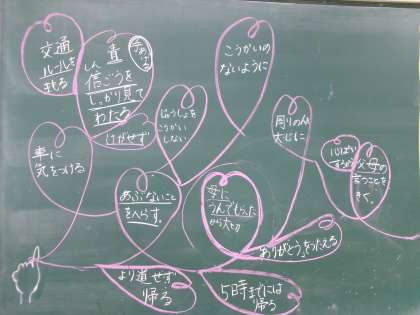 交通
ルールを
まもる
手あげる
一直
しん
信ごうを
しっかり見て
わたる
けがせず
こうかいの
ないように
じっしょを
こうかい
しない
周りの人
大じに
心ぱい
するから
父母の
言うことを
きく。
車に
気をつける
あぶないこと
をへらす。
母に
うんでもらった
から大切
ありがとうをつたえる
より道せず
帰る
5時までには
帰る